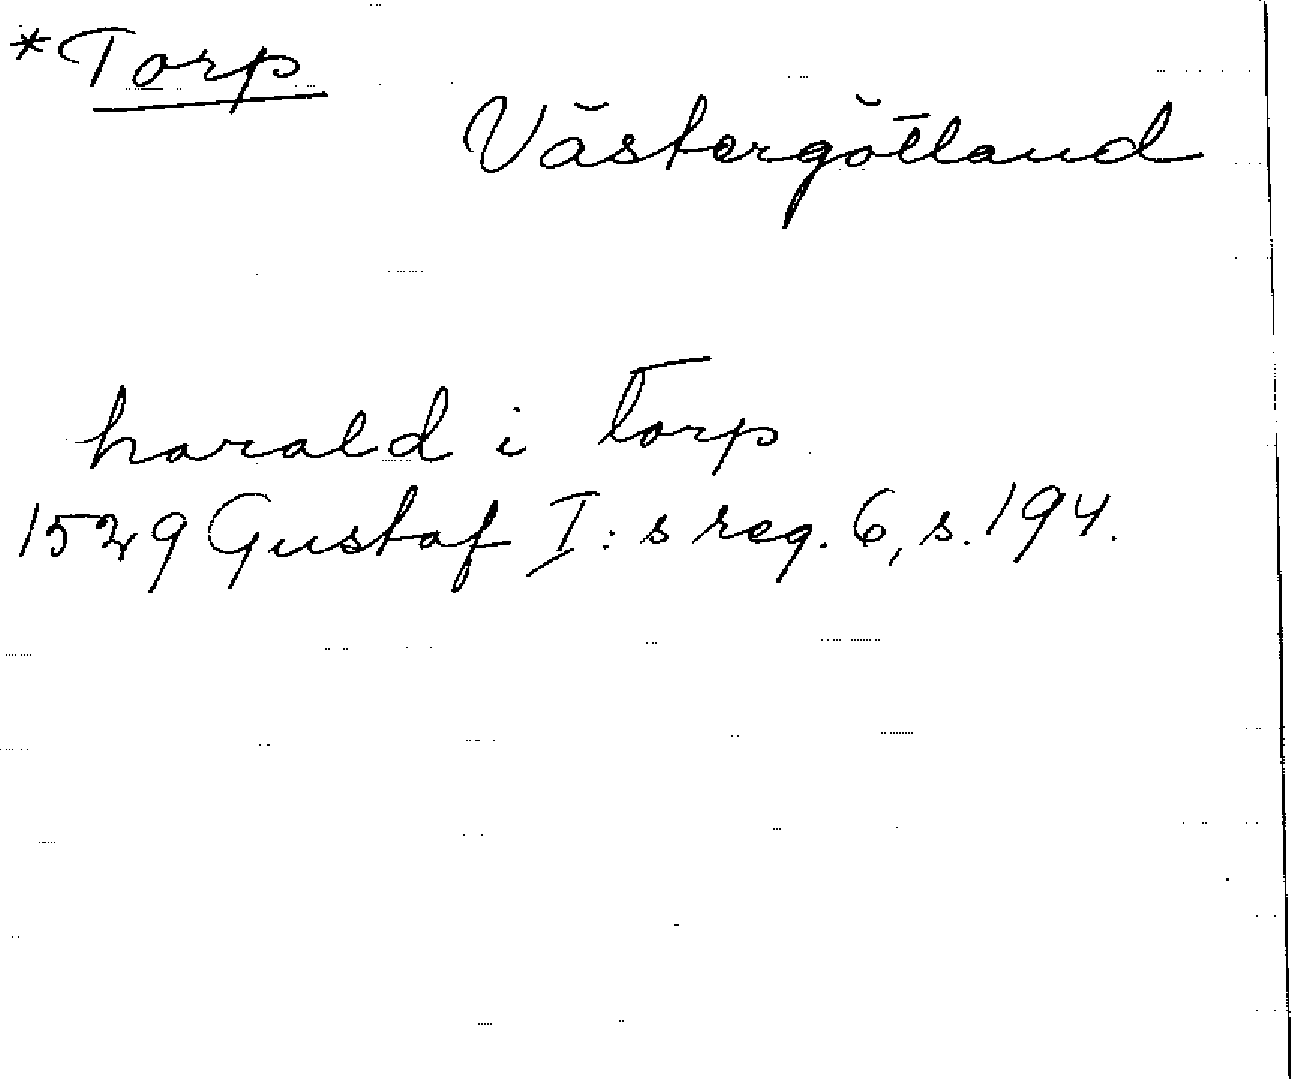 *Torp
Västergötland
harald i Torp
1529 Gustaf I:s reg. 6, s. 194.